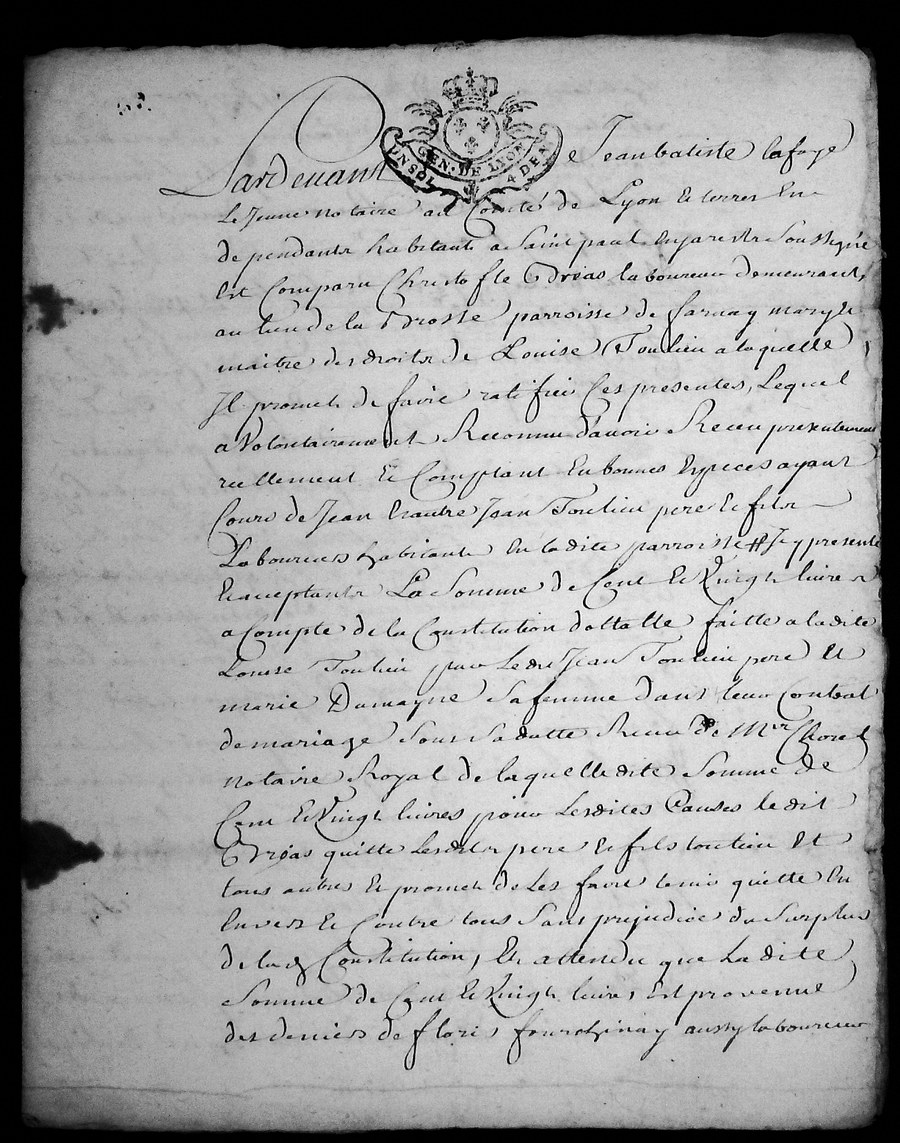 GEN · DE LYON
UN SOL 4 DEN
Pardevant Me Jean batiste lafaye
Le Jeune notaire au Comté de Lyon Et terres En
dependants habitant a Saint paul Enjarestz Soussigné
Est Comparu Christofle Brias laboureur demeurant
au lieu de la Brosse parroisse de farnay mary Et
maitre des droits de Louise Toulieu a laquelle
Il promet de faire ratifier Ces presentes, Lequel
a Volontairement Reconnu d'avoir Receu presentement
reellement Et Comptant En bonnes Especes ayant
Cours de Jean Et autre Jean Toulieu pere Et fils
Laboureurs habitants En la dite parroisse # Icy presents
Et acceptants La Somme de Cent Et Vingt livres
a Compte de la Constitution dottalle faitte a la dite
Louise Toulieu par Le dit Jean Toulieu pere Et
marie Dumayne Sa femme dans leur Contrat
de mariage Sous Sa datte Receu de Mre Chorel
notaire Royal de laquelle dite Somme de
Cent Et Vingt livres pour Lesdites Causes le dit
Brias quitte Lesdits pere Et fils toulieu Et
tous autres Et promet de Les faire tenir quitte En
Envers Et Contre tous Sans prejudice du Surplus
de la de Constitution, Et attendu que La dite
Somme de Cent Et Vingt livres Est provenue
des deniers de floris fourchinay aussy laboureur